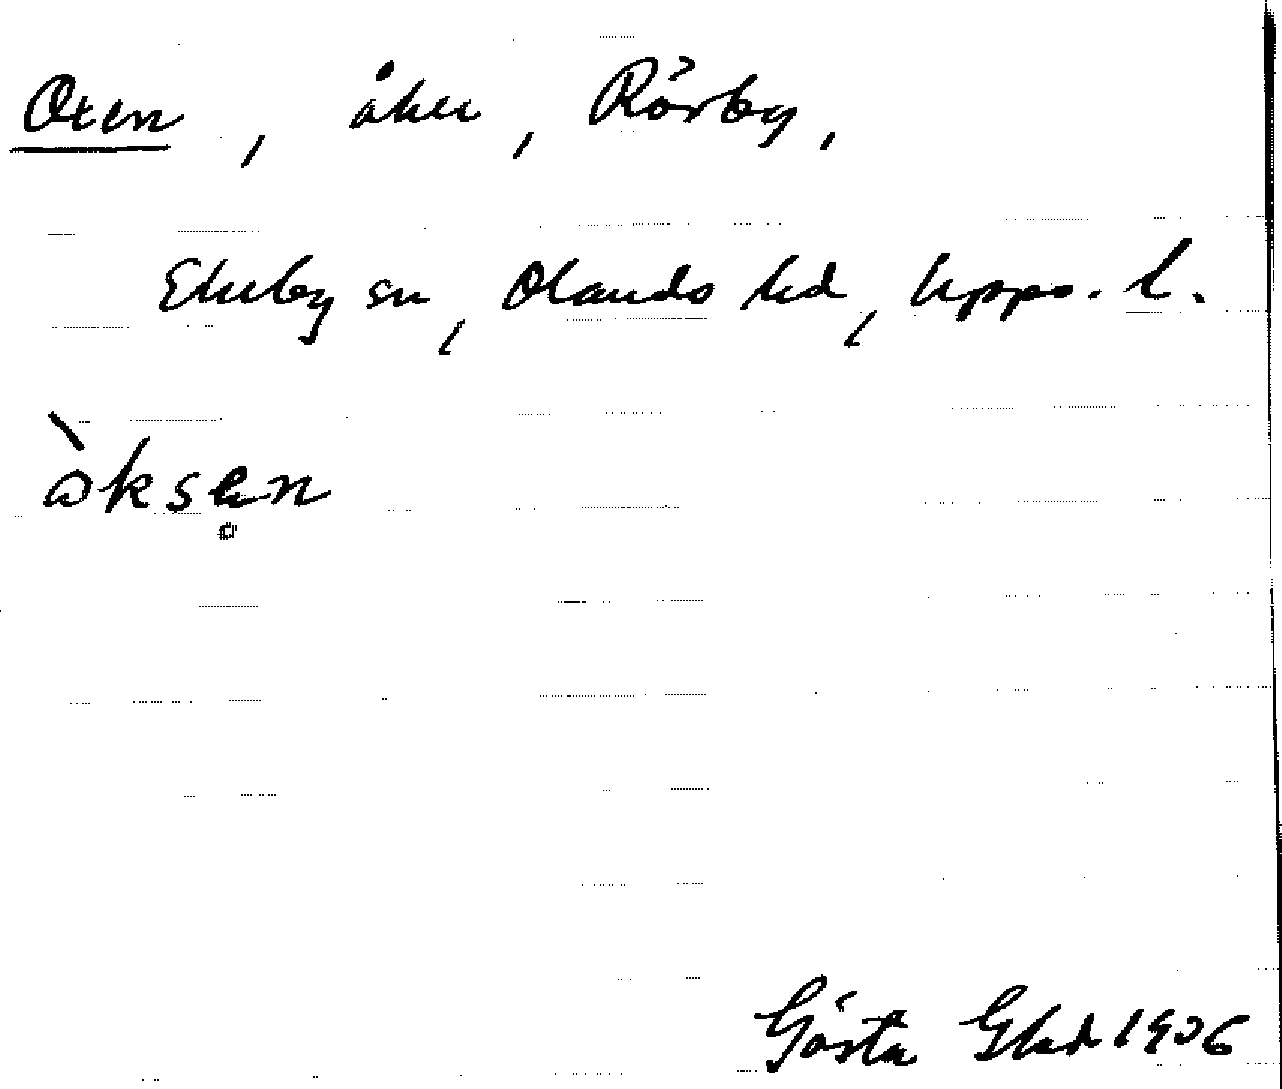 Oxen, åker, Rörby,
Ekeby sn, Olands hd, Upps. l.
òksen
Gösta Ekd 1936